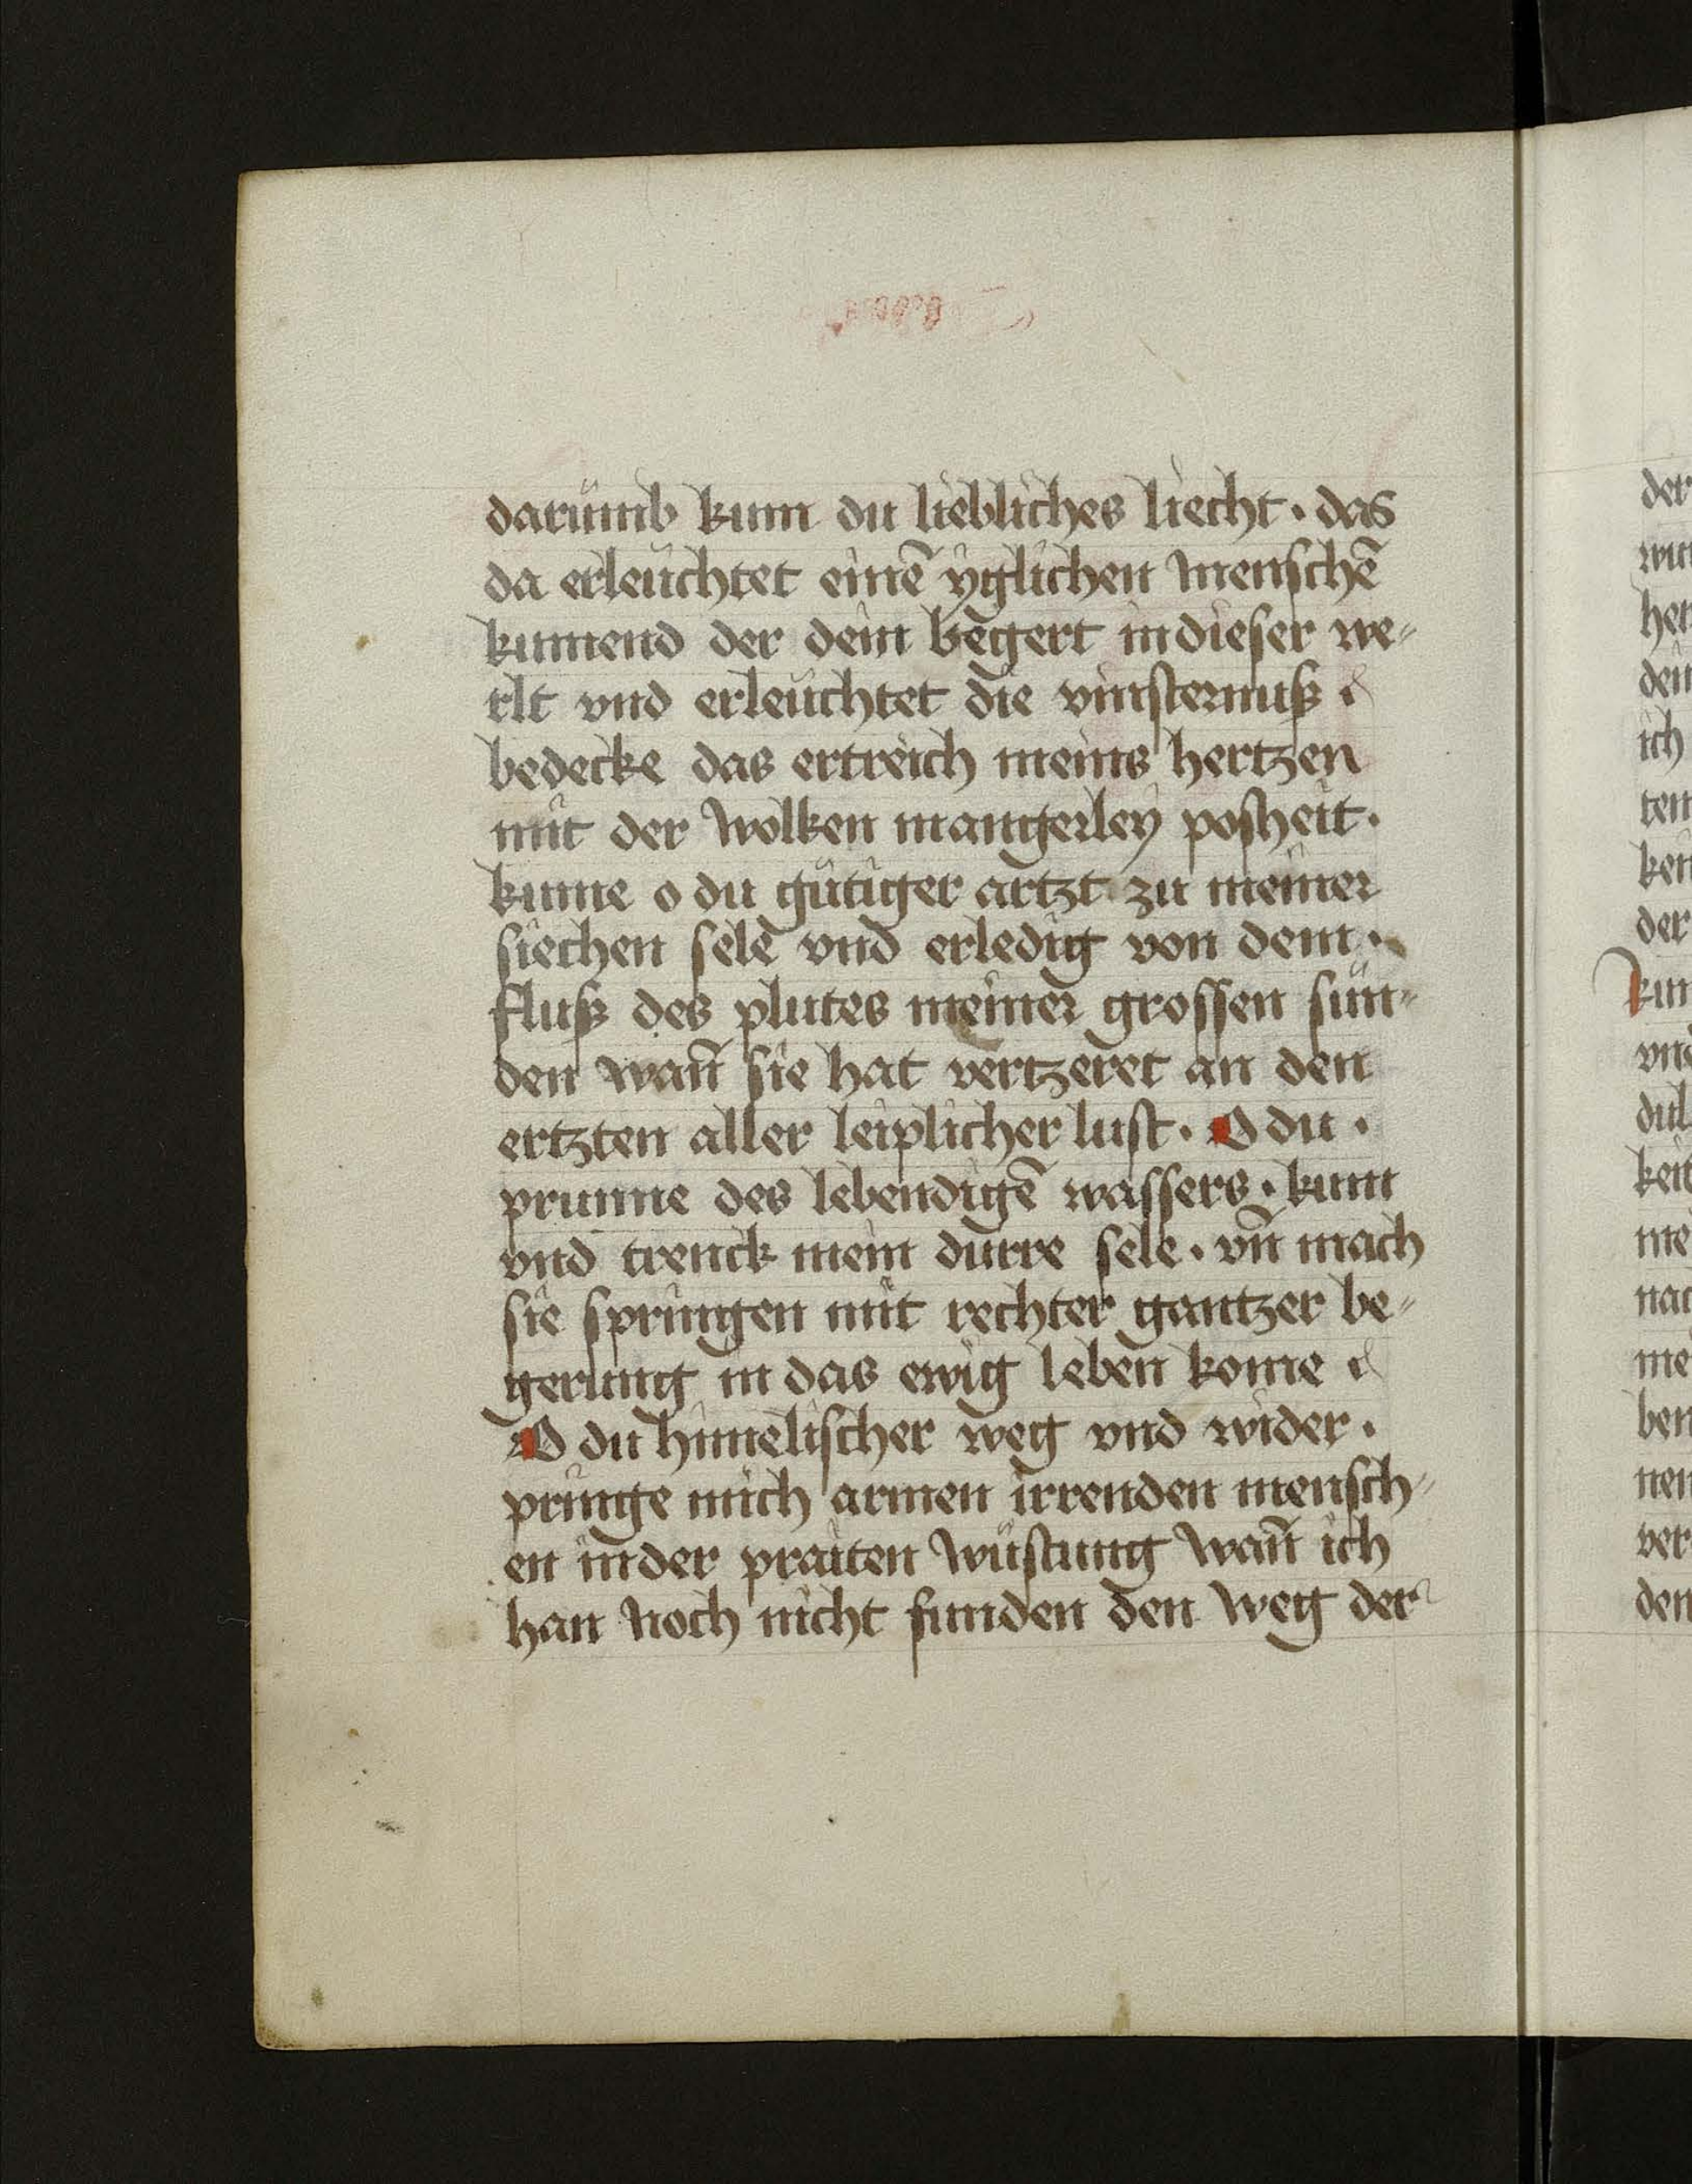 darümb kum du liebliches liecht · das
da erleüchtet einē yglichen menschē
kumend der dein begert in dieser we-
rlt vnd erleüchtet die vinsternuß
bedecke das ertreich meins hertzen
mit der wolken mangerley posheit ·
kume o du gütiger artzt zu meiner
siechen sele vnd erledig von dem ·
fluß des plutes meiner grossen sün-
den wañ sie hat vertzeret an den
ertzten aller leiplicher lust · O du ·
prunne des lebendigē wassers · kum
vnd trenck mein durre sele · vñ mach
sie springen mit rechter gantzer be-
gerung in das ewig leben kome
O du himelischer weg vnd wider ·
pringe mich armen irrenden mensch-
en in der praiten wüstung wañ ich
han noch nicht funden den weg der